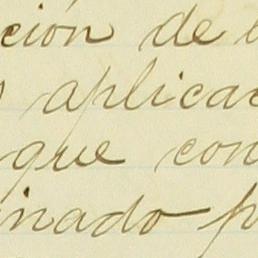 ción de l
aplicac
que con
inado p